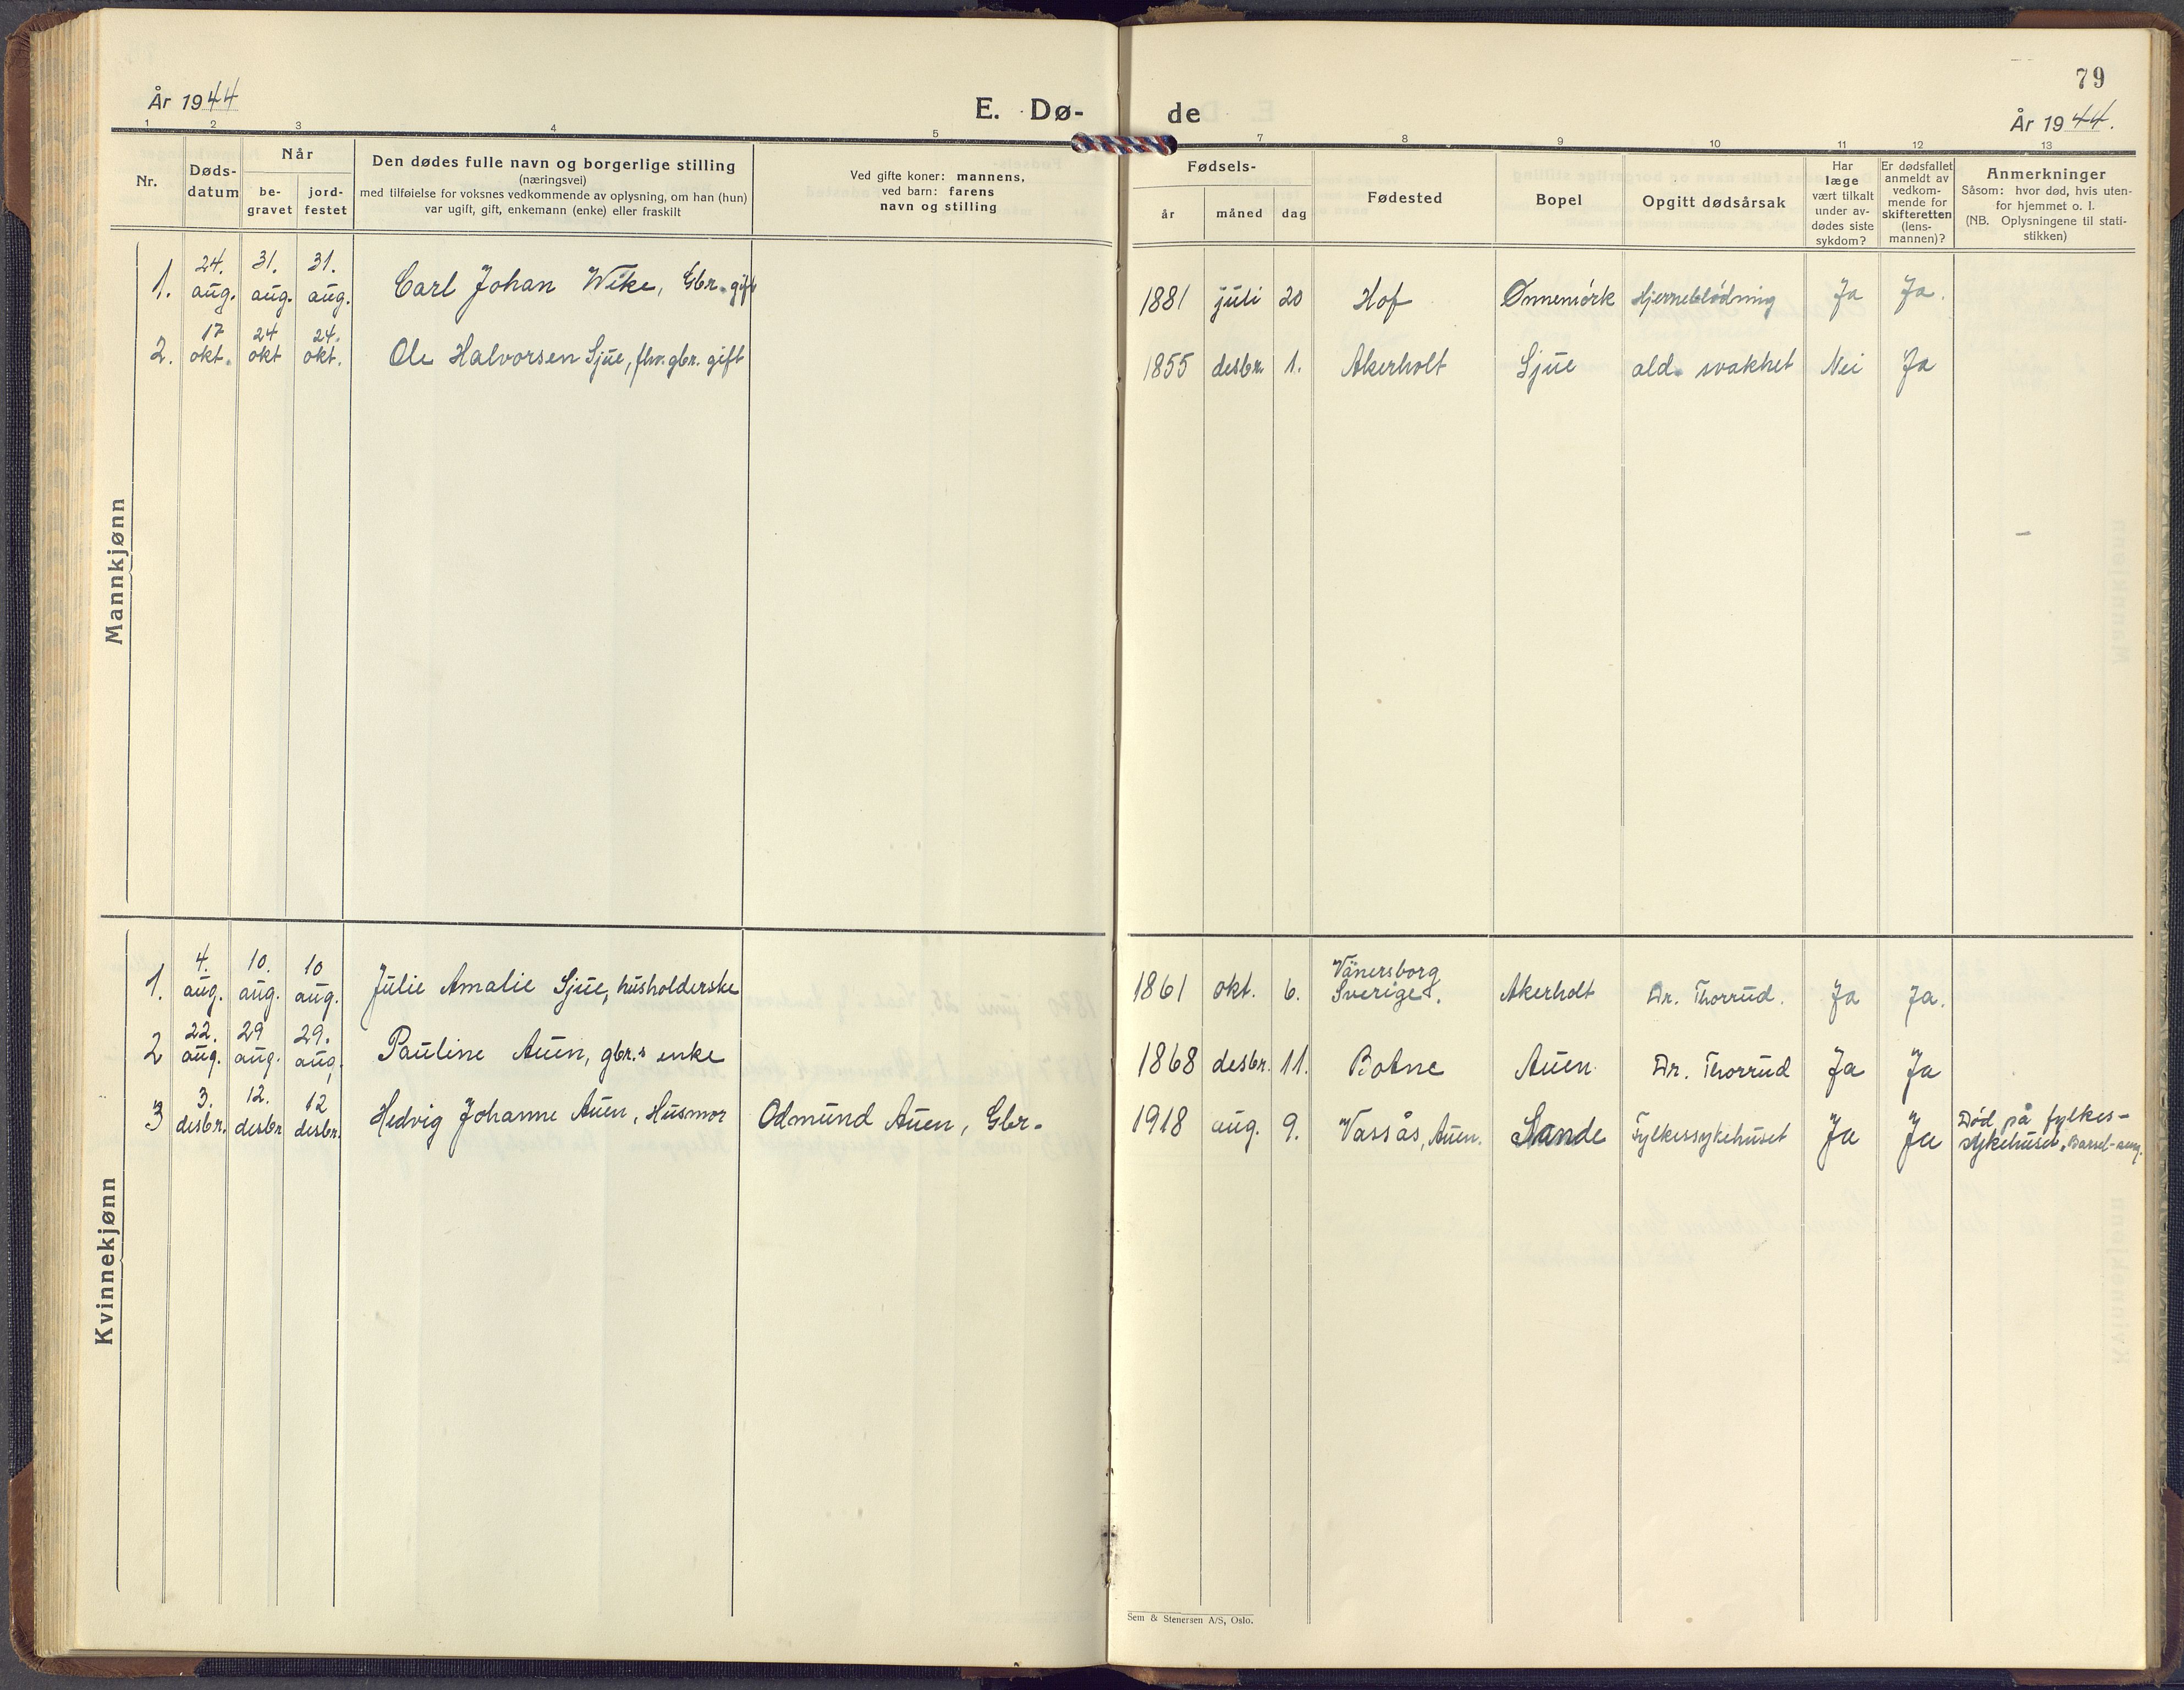 År 1944
E. Dø-
de
79
År 1944.
1 2 3 4 5 7 8 9 10 11 12 13
Nr.
Døds-
datum
Når
be-
gravet
jord-
festet
Den dødes fulle navn og borgerlige stilling
(næringsvei)
med tilføielse for voksnes vedkommende av oplysning, om han (hun)
var ugift, gift, enkemann (enke) eller fraskilt
Ved gifte koner: mannens,
ved barn: farens
navn og stilling
Fødsels-
år
måned
dag
Fødested
Bopel
Opgitt dødsårsak
Har
læge
vært tilkalt
under av-
dødes siste
sykdom?
Er dødsfallet
anmeldt av
vedkom-
mende for
skifteretten
(lens-
mannen)?
Anmerkninger
Såsom: hvor død, hvis uten-
for hjemmet o. l.
(NB. Oplysningene til stati-
stikken)
Mannkjønn
1. 24. aug. 31. aug. 31. aug. Carl Johan Wike, Gbr. gift 1881 juli 20 Hof Ønnemörk Hjerneblödning Ja Ja.
2. 17 okt. 24 okt 24. okt. Ole Halvorsen Sjue, fhv. gbr. gift 1855 desbr. 1. Akerholt Sjue ald. svakhet Nei Ja
Kvinnekjønn
1. 4. aug. 10. aug. 10 aug. Julie Amalie Sjue, husholderske 1861 okt. 6. Vänersborg Sverige. Akerholt Dr. Thorrud. Ja Ja.
2 22. aug. 29 aug. 29. aug. Pauline Auen, gbr.s enke 1868 desbr. 11. Botne Auen Dr. Thorrud Ja Ja
3 3. desbr. 12. desbr 12 desbr. Hedvig Johanne Auen, Husmor Odmund Auen, Gbr. 1918 aug. 9. Vassås, Auen. Sande Fylkessykehuset Ja Ja Død på fylkes-
sykehuset.
Sem & Stenersen A/S, Oslo.